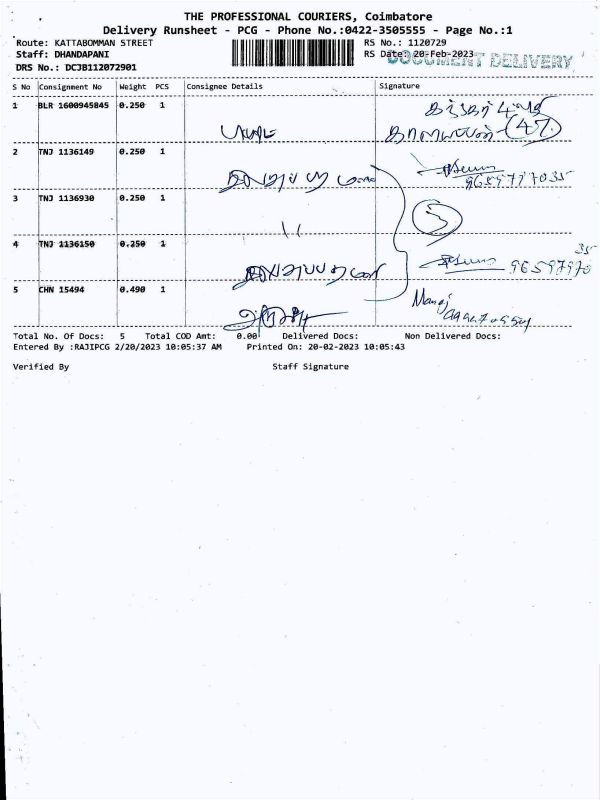 THE PROFESSIONAL COURIERS, Coimbatore
Delivery Runsheet - PCG - Phone No.:0422-3505555 - Page No.:1
Route: KATTABOMMAN STREET RS No.: 1120729
Staff: DHANDAPANI RS Date: 20-Feb-2023
DOCUMENT DELIVERY
DRS No.: DCJB112072901
S No Consignment No Weight PCS Consignee Details Signature
1 BLR 1600945845 0.250 1
2 TNJ 1136149 0.250 1
9659797035
3 TNJ 1136930 0.250 1
11 5
4 TNJ 1136150 0.250 1
9659797035
5 CHN 15494 0.490 1
Manoj
Total No. Of Docs: 5 Total COD Amt: 0.00 Delivered Docs: Non Delivered Docs:
Entered By :RAJIPCG 2/20/2023 10:05:37 AM Printed On: 20-02-2023 10:05:43
Verified By Staff Signature